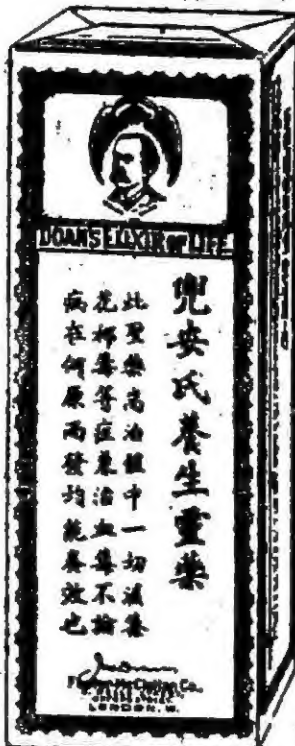 DOAN'S ELIXIR OF LIFE
兜安氏養生靈藥
此聖藥耑治體中一切濕毒
花柳毒等症兼治血毒不論
病在何原而發均能奏效也
Foster-McClellan Co.
LONDON, W.